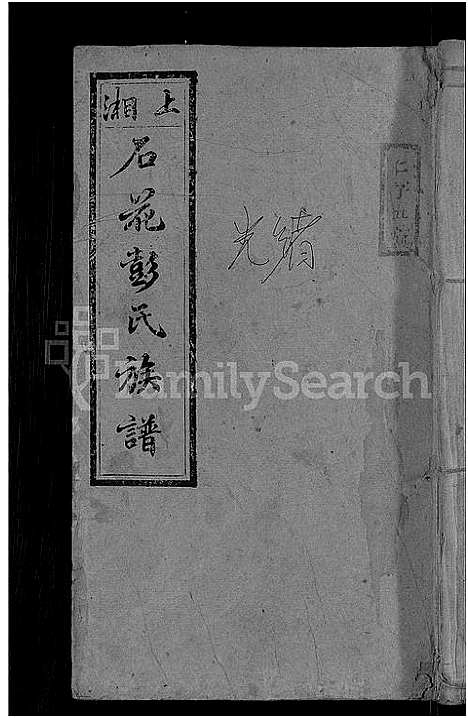 上湘
石花彭氏族譜
光緒
FamilySearch